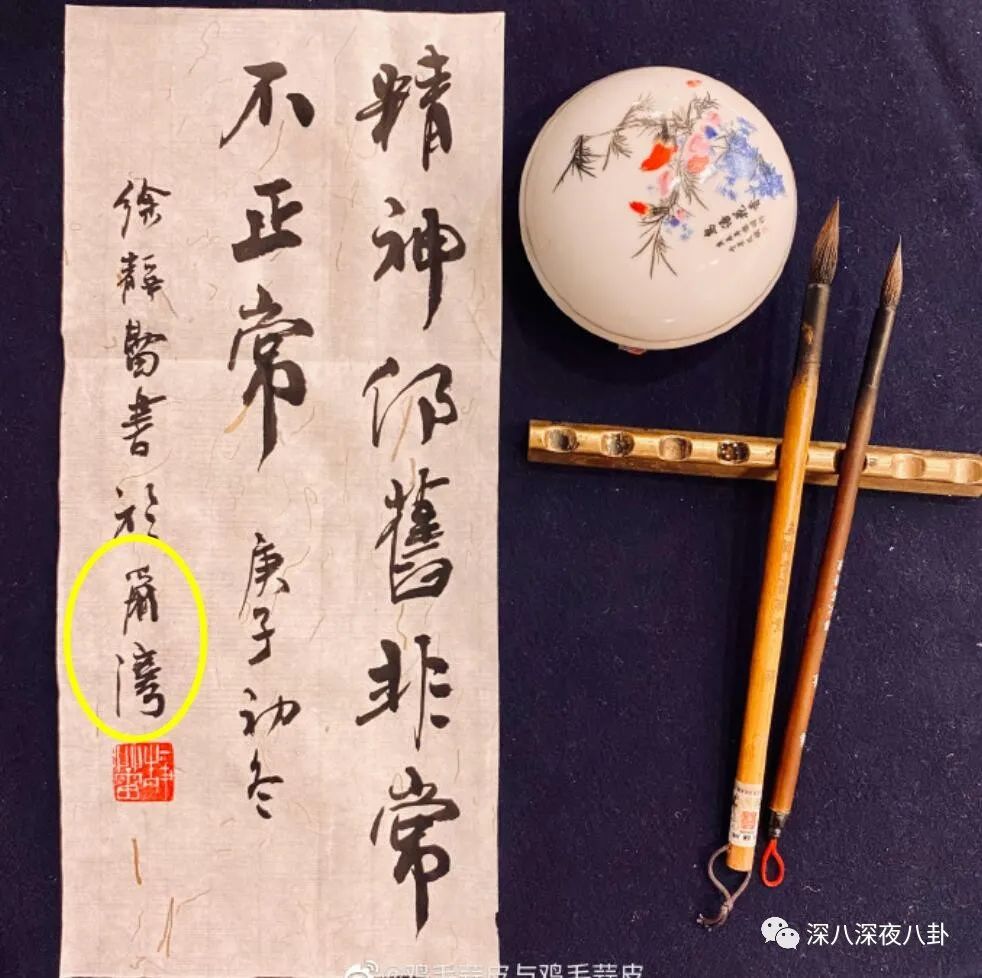 精神仍舊非常
不正常 庚子初冬
徐靜蕾書於爾灣
@鸡毛蒜皮与鸡毛蒜皮
深八深夜八卦